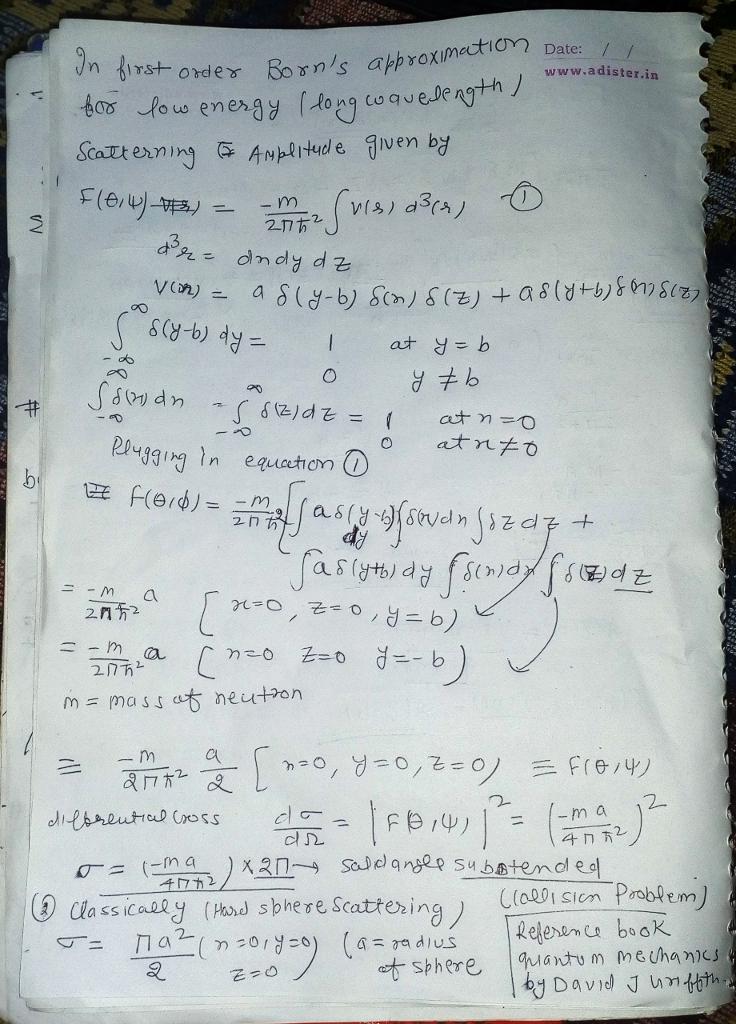 In first order Born's approximation
Date: / /
www.adister.in
for low energy (long wavelength)
Scatterning Amplitude given by
F(θ,ψ) = -m/2πħ² ∫ V(r) d³(r) ①
d³r = dndy dz
V(r) = a δ(y-b) δ(n) δ(z) + aδ(y+b) δ(n) δ(z)
∫_{-∞}^{∞} δ(y-b) dy = 1 at y = b
0 y ≠ b
∫_{-∞}^{∞} δ(n) dn = ∫_{-∞}^{∞} δ(z) dz = 1 at n = 0
0 at n ≠ 0
Plugging in equation ①
F(θ,ϕ) = -m/2πħ² [∫ aδ(y-b) dy ∫δ(n) dn ∫δz dz +
∫aδ(y+b) dy ∫δ(n) dn ∫δ(z) dz
= -m/2πħ² a [x=0, z=0, y=b)
= -m/2πħ² a (n=0 z=0 y=-b)
m = mass of neutron
≡ -m/2πħ² a/2 [n=0, y=0, z=0) ≡ F(θ,ψ)
differential Cross dσ/dΩ = |F(θ,ψ)|² = (-ma/4πħ²)²
σ = (-ma/4πħ²) × 2π → solid angle subtended
② Classically (Hard sphere Scattering)
(Collision Problem)
σ = πa²/2 (n=0, y=0, z=0) (a = radius of sphere
Reference book
quantum mechanics
by David J
Σ
#
b